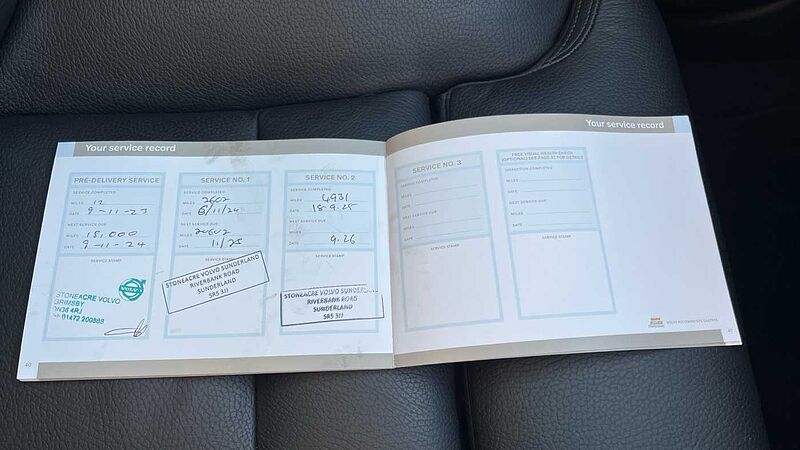 Your service record
PRE-DELIVERY SERVICE
SERVICE COMPLETED
MILES 12
DATE 9-11-23
NEXT SERVICE DUE
MILES 18,000
DATE 9-11-24
SERVICE STAMP
STONEACRE VOLVO
GRIMSBY
DN36 4RJ
01472 200888
VOLVO
40
SERVICE NO. 1
SERVICE COMPLETED
MILES 2602
DATE 6/11/24
NEXT SERVICE DUE
MILES 20602
DATE 11/25
SERVICE STAMP
STONEACRE VOLVO SUNDERLAND
RIVERBANK ROAD
SUNDERLAND
SR5 3JJ
SERVICE NO. 2
SERVICE COMPLETED
MILES 4931
DATE 18-9-25
NEXT SERVICE DUE
MILES
DATE 9.26
SERVICE STAMP
STONEACRE VOLVO SUNDERLAND
RIVERBANK ROAD
SUNDERLAND
SR5 3JJ
Your service record
SERVICE NO. 3
SERVICE COMPLETED
MILES
DATE
NEXT SERVICE DUE
MILES
DATE
SERVICE STAMP
FREE VISUAL HEALTH CHECK
(OPTIONAL) SEE PAGE 37 FOR DETAILS
INSPECTION COMPLETED
MILES
DATE
NEXT SERVICE DUE
MILES
DATE
SERVICE STAMP
VOLVO RECOMMENDS CASTROL
41